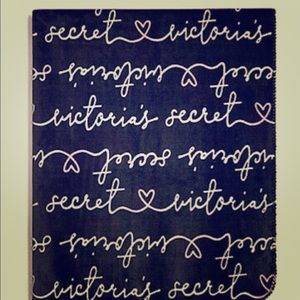 secret ♡ victoria's
victoria's secret
victoria's secret ♡
secret victoria's
secret ♡ victoria's
victoria's secret
victoria's secret ♡